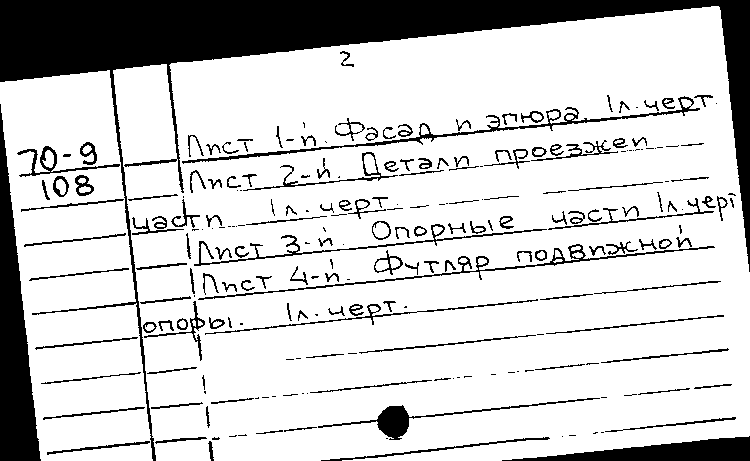 2
70-9
108
Лист 1-й. Фасад и эпюра. 1л. черт.
Лист 2-й. Детали проезжей
части 1л. черт.
Лист 3-й. Опорные части 1л. черт
Лист 4-й. Футляр подвижной
опоры. 1л. черт.